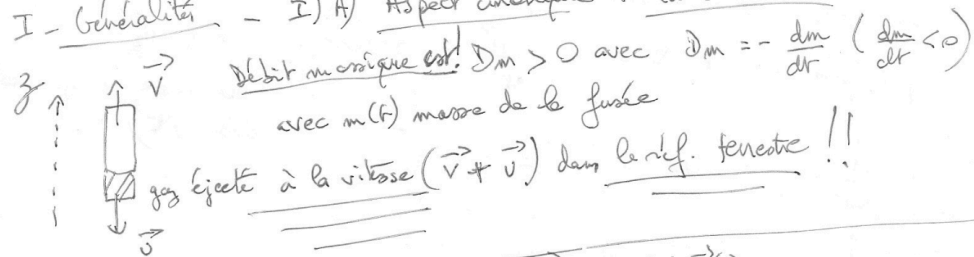 I - Généralités - I) A) Aspect
Débit massique est! Dm > 0 avec Dm = - dm/dt ( dm/dt < 0 )
z V avec m(t) masse de la fusée
gaz éjecté à la vitesse (V + U) dans le réf. terrestre !!
U